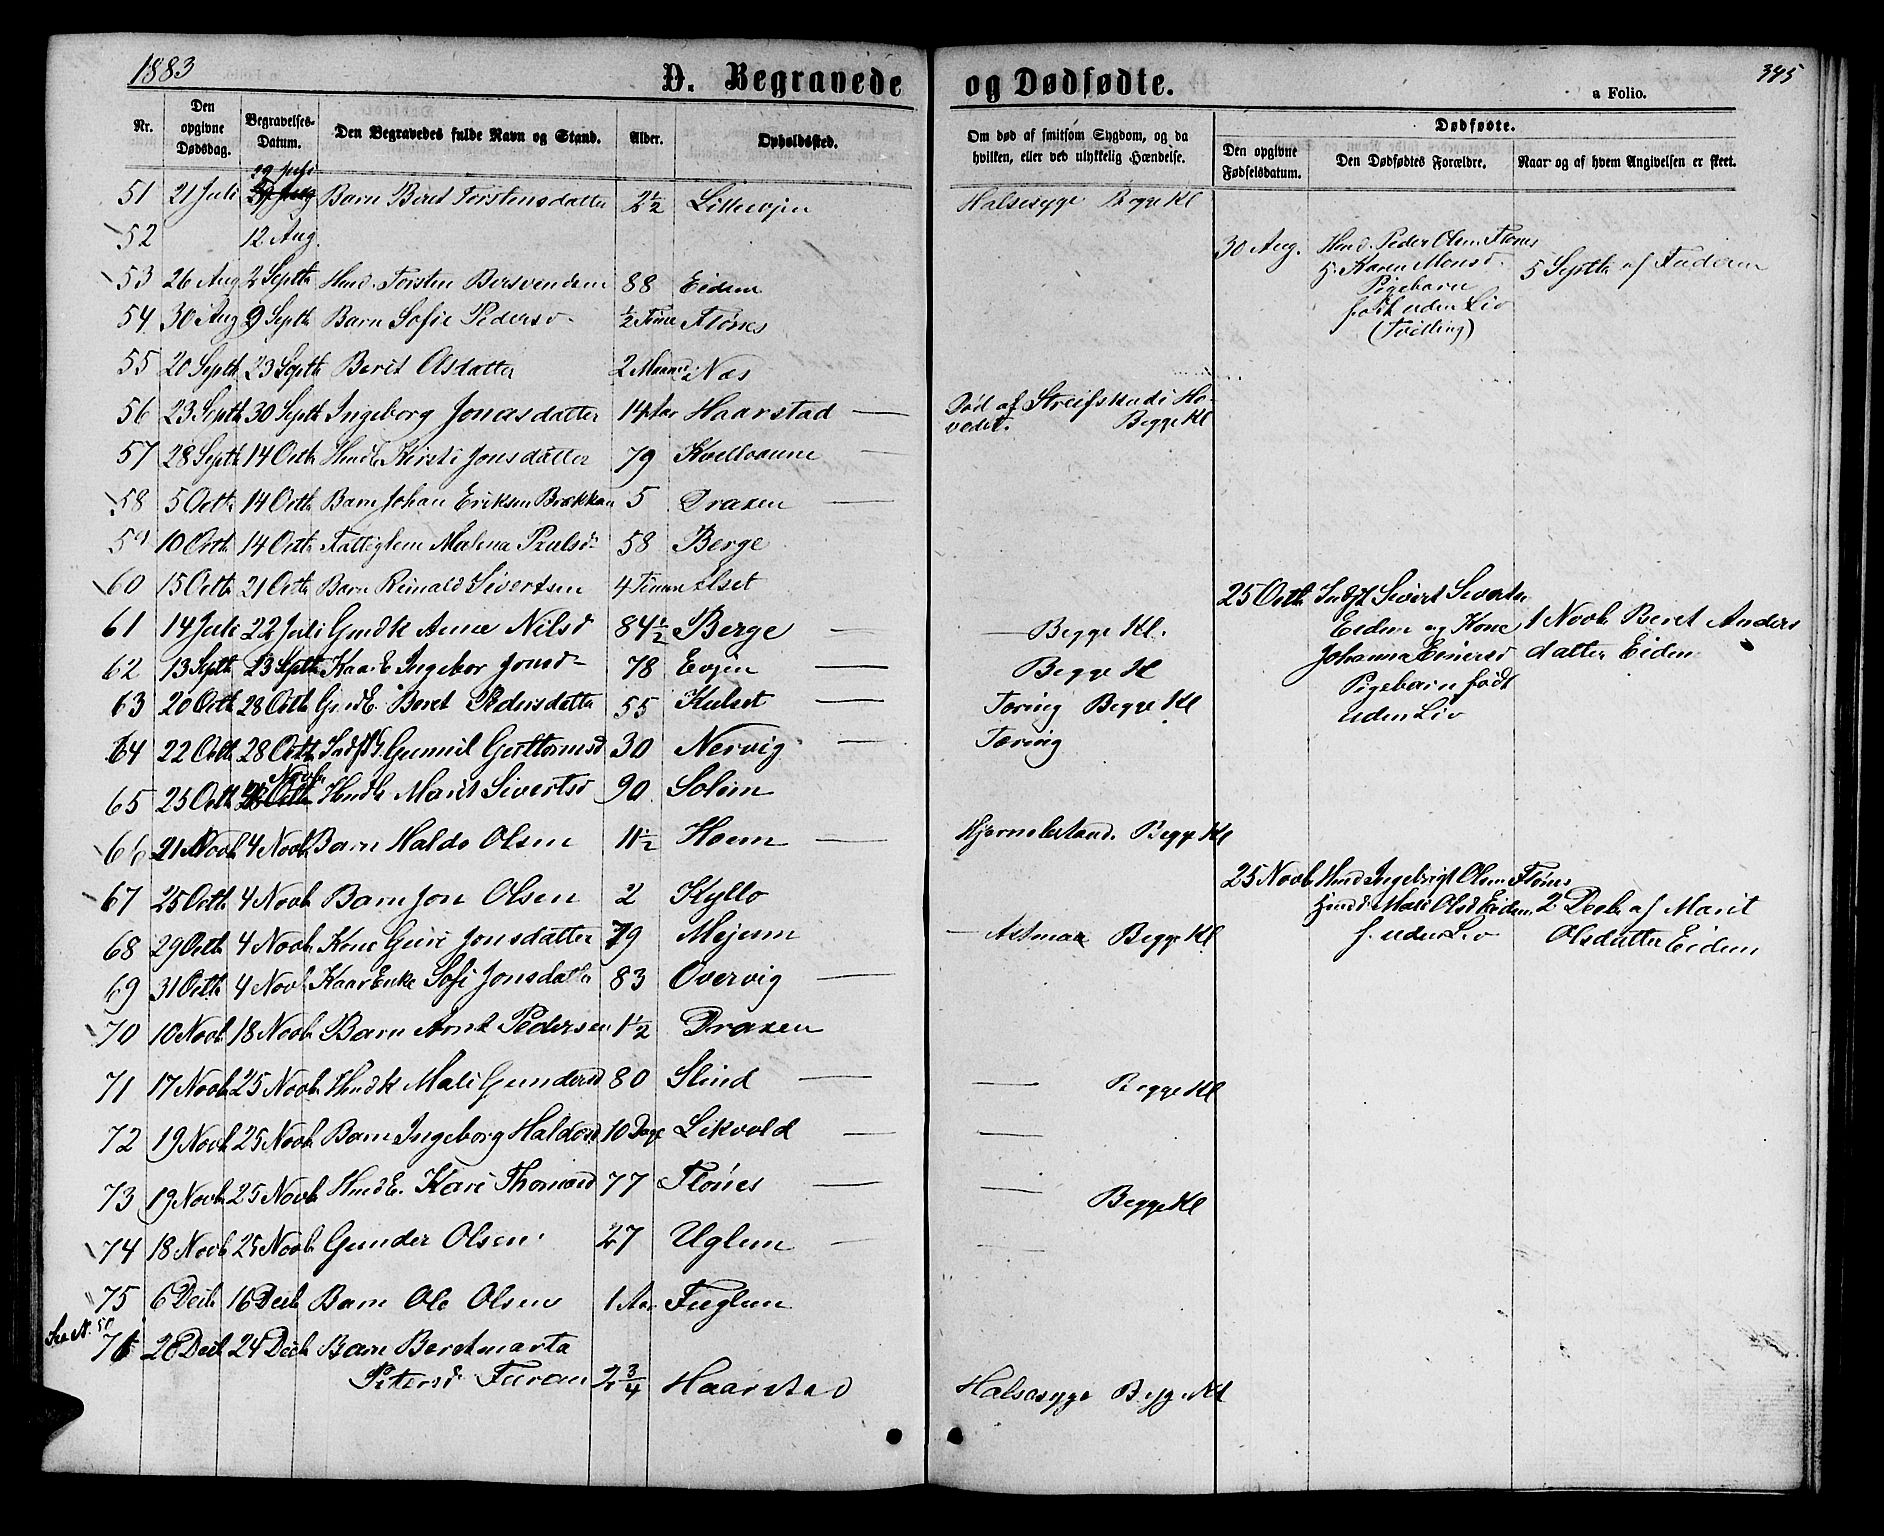 1883
D. Begravede og Dødfødte.
345
a Folio.
Nr.
Den opgivne Dødsdag.
Begravelses-Datum.
Den Begravedes fulde Navn og Stand.
Alder.
Opholdssted.
Om død af smitsom Sygdom, og da hvilken, eller ved ulykkelig Hændelse.
Dødfødte.
Den opgivne Fødselsdatum.
Den Dødfødtes Forældre.
Naar og af hvem Angivelsen er skeet.
29 Juli
51 21 Juli Barn Beret Torstensdatter 2½ Lillevjen Halsesyge Begge Kl
52 12 Aug.
30 Aug. Hmd. Peder Olsen Flønes
H. Karen Monsd.
Pigebarn
født uden Liv
(Tvilling)
5 Septb af Faderen
53 26 Aug 2 Septb Hmd. Torsten Bersvendsen 88 Eidem
54 30 Aug 9 Septb Barn Sofie Pedersd ½ Time Flønes
55 20 Septb 23 Septb Beret Olsdatter 2 Maaned Næs
56 23 Septb 30 Septb Ingeborg Jonasdatter 14 Aar Haarstad — Død af Streifskud i Ho-
vedet. Begge Kl
57 28 Septb 14 Octb Hmdk Kirsti Jonsdatter 79 Kvelloaune —
58 5 Octb 14 Octb Barn Johan Eriksen Brækkan 5 Draxen —
59 10 Octb 14 Octb Fattiglem Malena Paulsd 58 Berge
60 15 Octb 21 Octb Barn Reinald Sivertsen 4 Timer Elset
25 Octb Indst Sivert Sivertsen
Eidem og Kone
Johanna Einersd
Pigebarn født
uden Liv
1 Novb Beret Anders
datter Eidem
61 14 Juli 22 Juli Gmdk Anne Nilsd 84½ Berge — — Begge Kl.
62 13 Septb 23 Septb Kaar E Ingebor Jonsd 78 Evjen — Begge Kl
63 20 Octb 28 Octb Gmd E. Beret Pedersdatter 55 Kulset — Tæring Begge Kl
64 22 Octb 28 Octb Gunnil Guttormsd 30 Nervig — Tæring
Novb
65 25 Octb Hmdk Marit Sivertsd 90 Solem
66 21 Novb 4 Novb Barn Haldo Olsen 1½ Hoem — Hjernebetænd. Begge Kl
67 25 Octb 4 Novb Barn Jon Olsen 2 Kyllo
25 Novb Hmd Ingebrigt Olsen Flønes
Hmd: Mali Olsd Eidem
f. uden Liv
2 Decb af Marit
Olsdatter Eidem
68 29 Octb 4 Novb Kone Guri Jonsdatter 79 Mejem — Astma Begge Kl
69 31 Octb 4 Novb Kaar Enke Sofi Jonsdatter 83 Overvig —
70 10 Novb 18 Novb Barn Arnt Pedersen 1½ Draxen
71 17 Novb 25 Novb Hmdk Mali Gundersd 80 Slind — — Begge Kl
72 19 Novb 25 Novb Barn Ingeborg Haldosd 10 Dage Likvold — —
73 19 Novb 25 Novb Hmd E. Kari Thomasd 77 Flønes — — Begge Kl
74 18 Novb 25 Novb Gunder Olsen 27 Uglem —
75 6 Decb 16 Decb Barn Ole Olsen 1 Aar Fuglem
See N. 50
76 20 Decb 24 Decb Barn Beretmarta
Petersd Furan 2¾ Haarstad Halsesyge Begge Kl